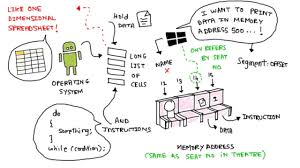 LIKE ONE
DIMENSIONAL
SPREADSHEET!
HOLD
DATA
OPERATING
SYSTEM
LONG
LIST
OF
CELLS
do
{
Something;
}
while (condition);
AND
INSTRUCTIONS
I WANT TO PRINT
DATA IN MEMORY
ADDRESS 500...!
NAME
X
ONLY REFERS
BY SEAT
NO
SEGMENT: OFFSET
INSTRUCTION
DATA
MEMORY ADDRESS
(SAME AS SEAT NO IN THEATRE)